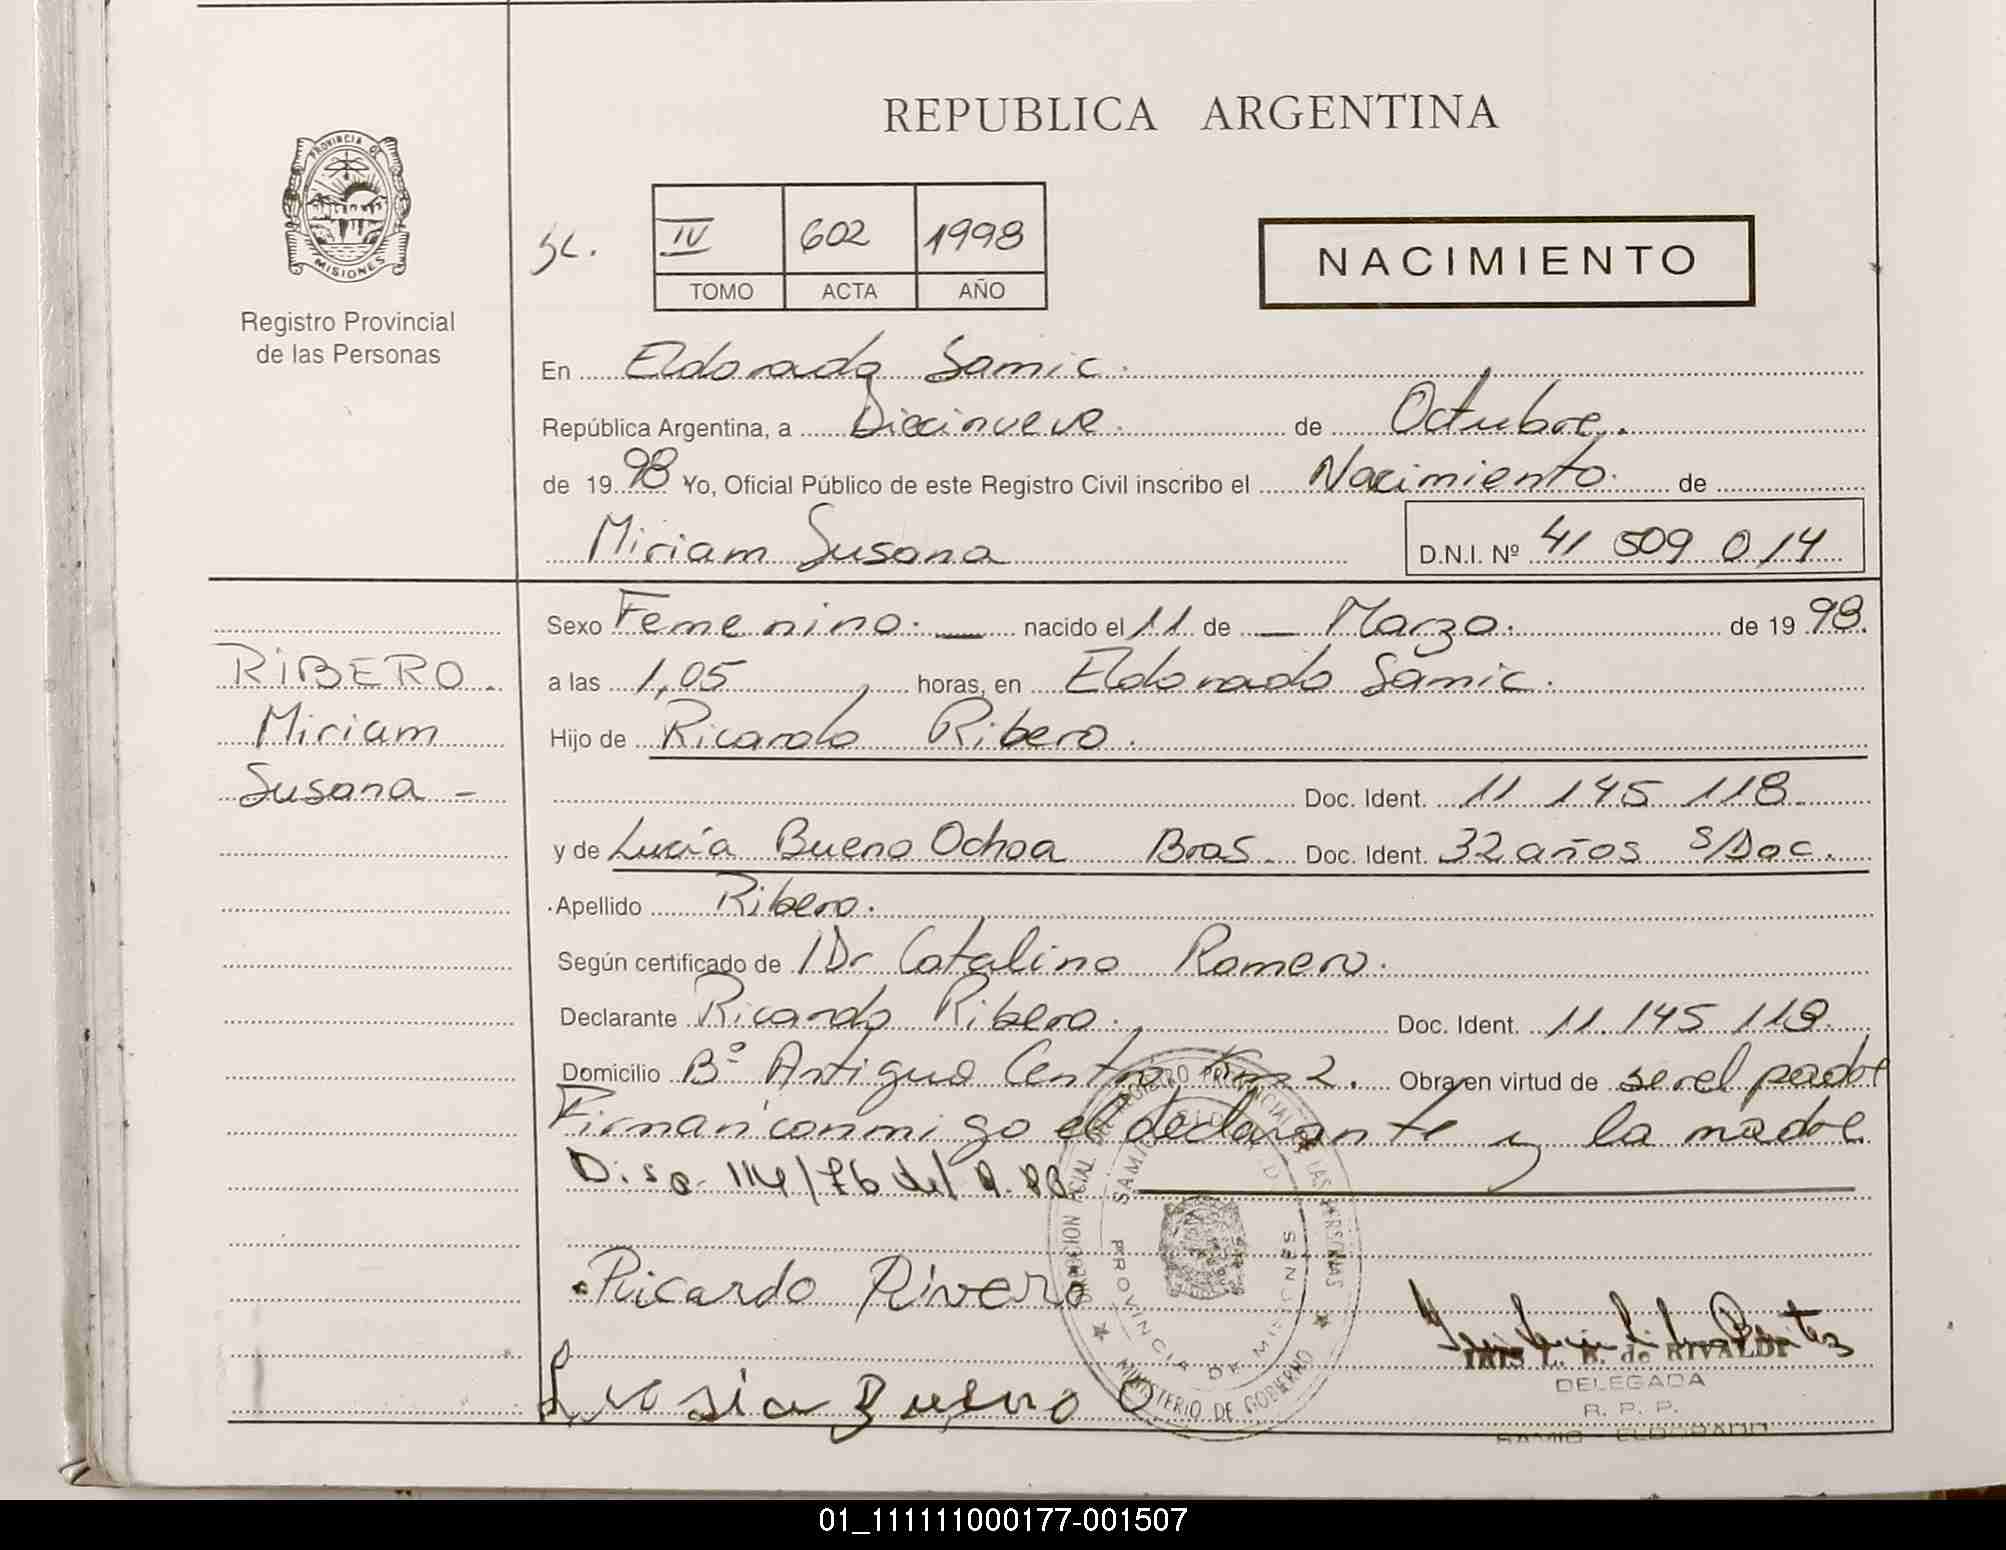 REPUBLICA ARGENTINA
PROVINCIA DE
MISIONES
Registro Provincial
de las Personas
IV 602 1998
TOMO ACTA AÑO
NACIMIENTO
En Eldorado Samic.
República Argentina, a Diecinueve. de Octubre.
de 1998 Yo, Oficial Público de este Registro Civil inscribo el Nacimiento. de
Miriam Susana D.N.I. Nº 41 509 014
Sexo Femenino. — nacido el 11 de — Marzo. de 1998.
RIBERO.
Miriam
Susana -
a las 1,05 horas, en Eldorado Samic.
Hijo de Ricardo Ribero.
Doc. Ident. 11 145 118
y de Lucía Bueno Ochoa Bras. Doc. Ident. 32 años s/Doc.
Apellido Ribero.
Según certificado de 1Dr Catalino Romero.
Declarante Ricardo Ribero. Doc. Ident. 11.145 118.
Domicilio Bº Antiguo Centro, Km 2. Obra en virtud de ser el padre
Firman conmigo el declarante y la madre
Disp. 114/76 del
Ricardo Rivero
Lusia Bueno O
MINISTERIO DE GOBIERNO
PROVINCIA DE
IRIS L. B. de RIVALDI
DELEGADA
R. P. P.
SAMIC - ELDORADO
01_111111000177-001507